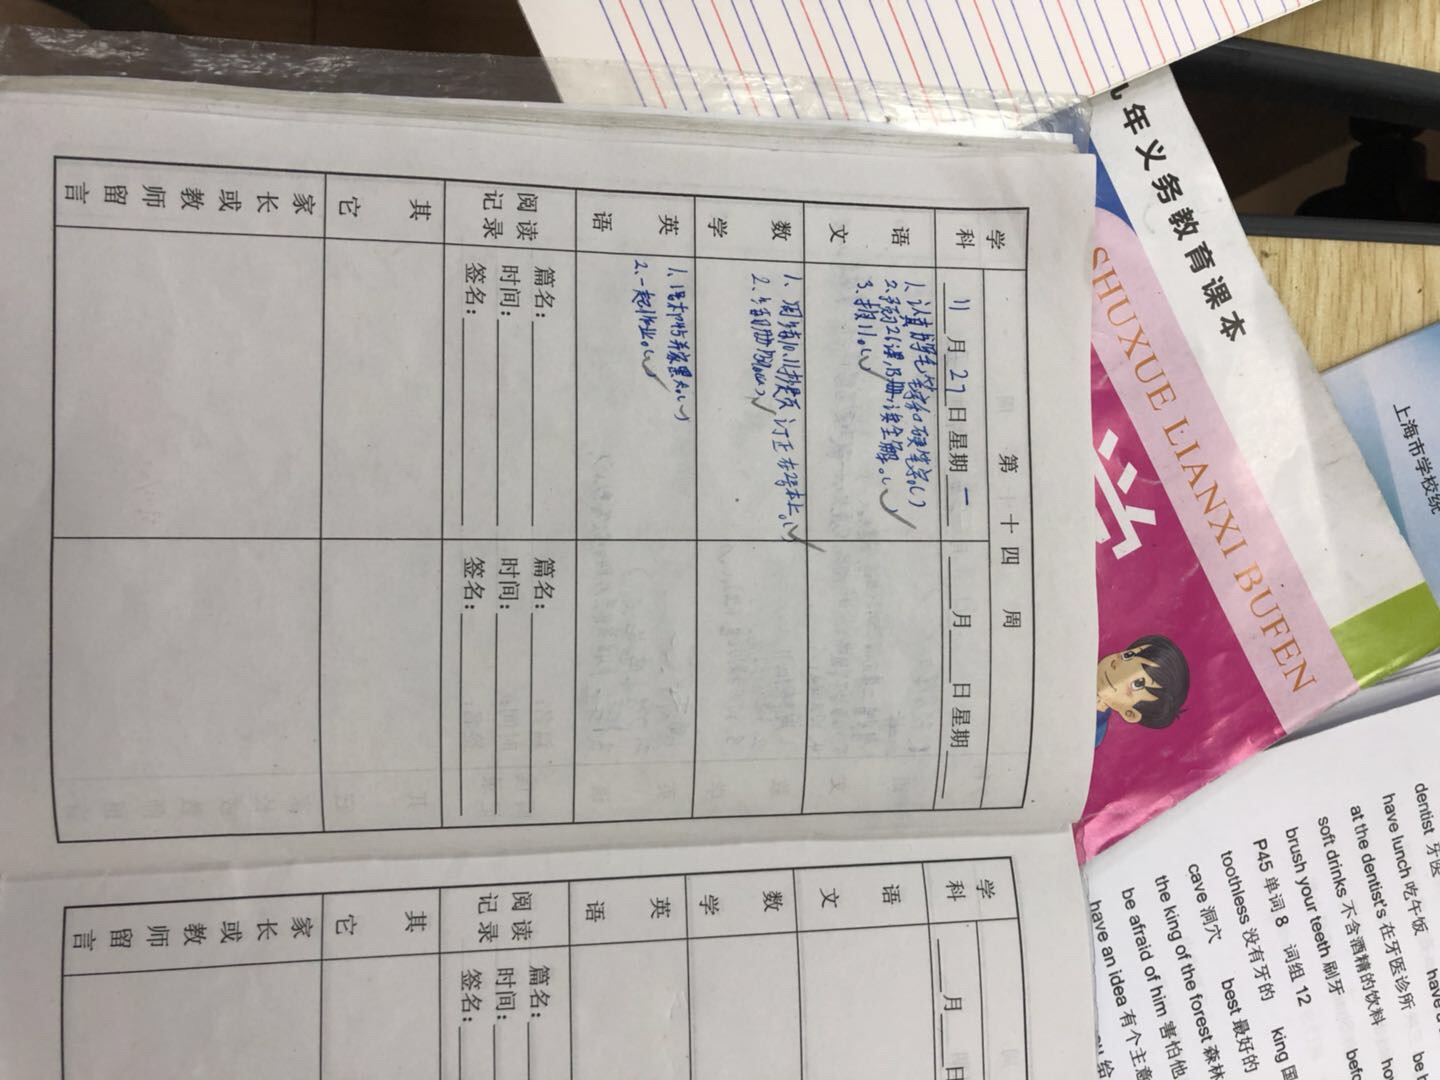 第十四周
学科
11月27日星期一
月 日星期
语文
1、认真写毛笔字和硬笔字。()
2、预习26课,B册,读全解。()
3、报11。()
数学
1、周 10、11 页订正在2号本上。()
2、
英语
1、
2、一起作业。()
阅读记录
篇名:
时间:
签名:
篇名:
时间:
签名:
其它
家长或教师留言
学科
月 日
语文
数学
英语
阅读记录
篇名:
时间:
签名:
其它
家长或教师留言
年义务教育课本
SHUXUE LIANXI BUFEN
学
上海市学校统
dentist 牙医
have lunch 吃午饭
at the dentist's 在牙医诊所
soft drinks 不含酒精的饮料
brush your teeth 刷牙
P45 单词 8 词组 12
toothless 没有牙的 king 国
cave 洞穴 best 最好的
the king of the forest 森林
be afraid of him 害怕他
have an idea 有个主意
给